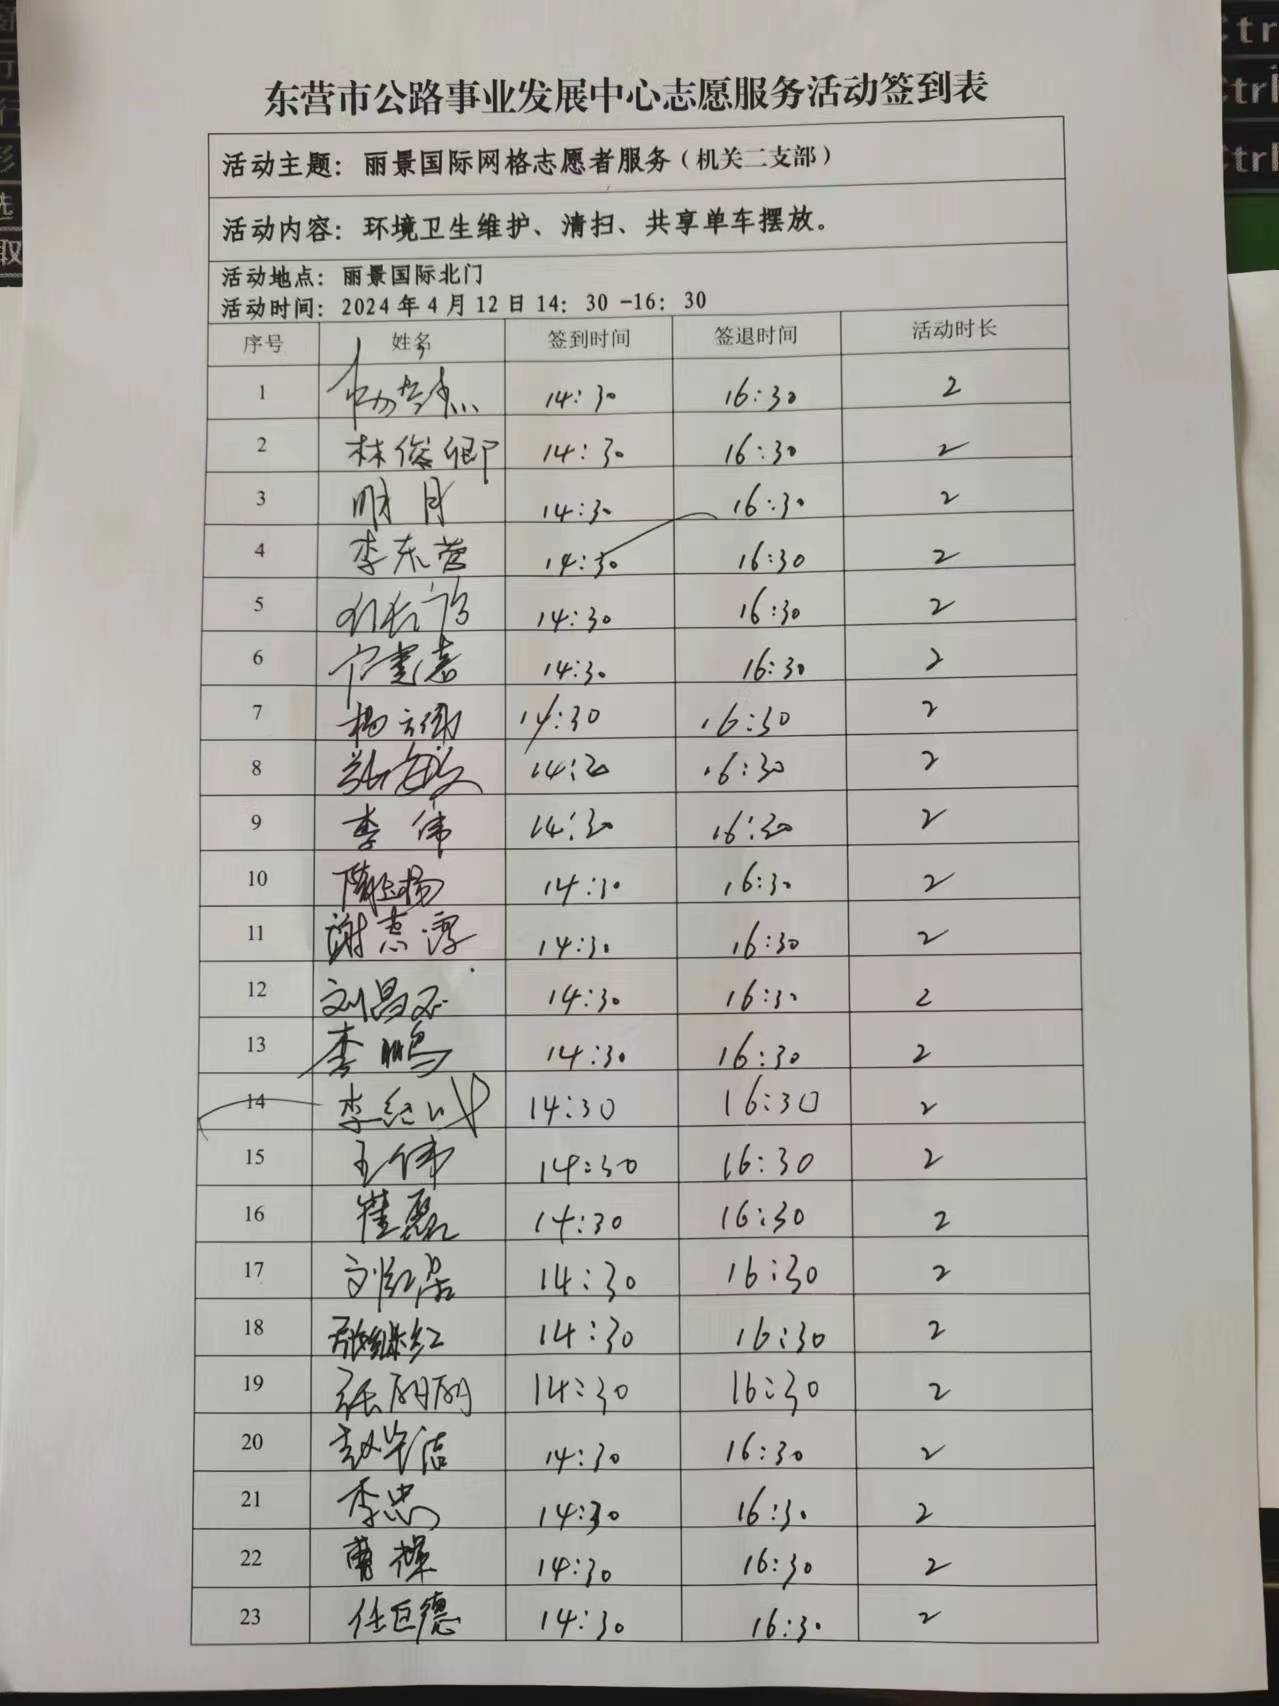 东营市公路事业发展中心志愿服务活动签到表
活动主题：丽景国际网格志愿者服务（机关二支部）
活动内容：环境卫生维护、清扫、共享单车摆放。
活动地点：丽景国际北门
活动时间：2024年4月12日14：30-16：30
序号 姓名 签到时间 签退时间 活动时长
1 14:30 16:30 2
2 林俊卿 14:30 16:30 2
3 明月 14:30 16:30 2
4 李东营 14:30 16:30 2
5 14:30 16:30 2
6 14:30 16:30 2
7 14:30 16:30 2
8 14:30 16:30 2
9 李伟 14:30 16:30 2
10 14:30 16:30 2
11 谢志淳 14:30 16:30 2
12 刘昌 14:30 16:30 2
13 李鹏 14:30 16:30 2
14 李 14:30 16:30 2
15 王伟 14:30 16:30 2
16 崔磊 14:30 16:30 2
17 刘红 14:30 16:30 2
18 张继红 14:30 16:30 2
19 张丽丽 14:30 16:30 2
20 赵 洁 14:30 16:30 2
21 李忠 14:30 16:30 2
22 曹操 14:30 16:30 2
23 任巨德 14:30 16:30 2
Ctr
Ctrl
Ctrl
取